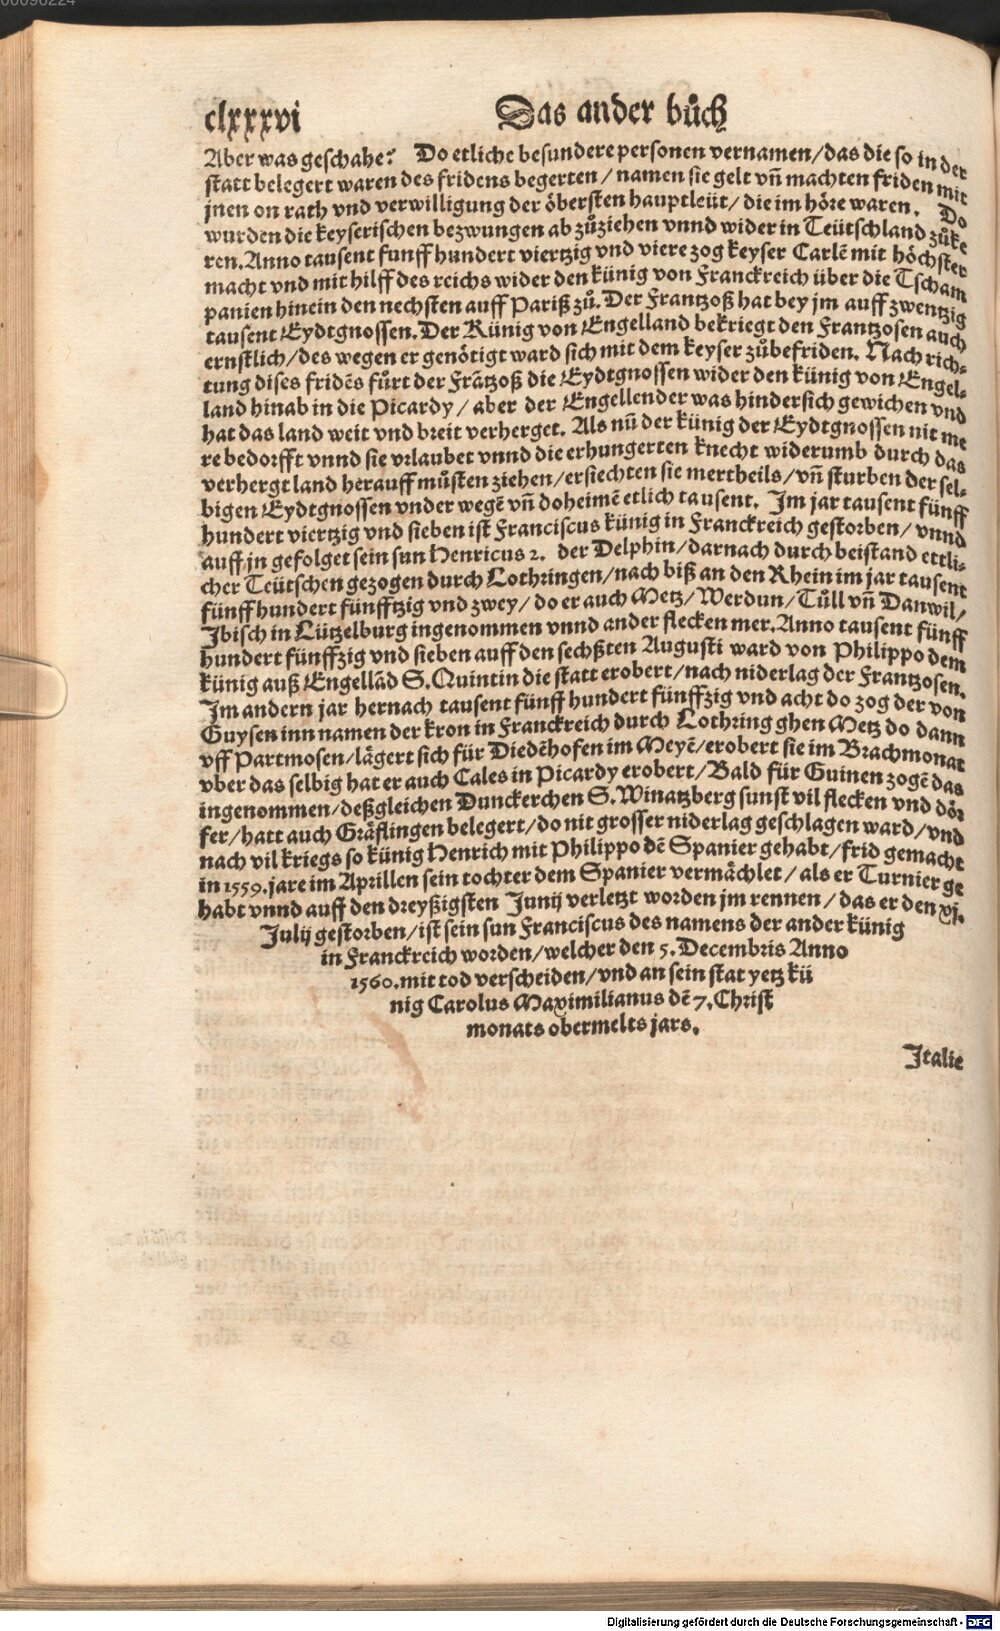 00096224
clxxxvi Das ander bůch
Aber was geschahe? Do etliche besundere personen vernamen/das die so in der
statt belegert waren des fridens begerten / namen sie gelt vñ machten friden mit
jnen on rath vnd verwilligung der öbersten hauptleüt/ die im höre waren. Do
wurden die keyserischen bezwungen ab zůziehen vnnd wider in Teütschland zůke
ren. Anno tausent funff hundert viertzig vnd viere zog keyser Carlẽ mit höchster
macht vnd mit hilff des reichs wider den künig von Franckreich über die Tscham
panien hinein den nechsten auff Pariß zů. Der Frantzoß hat bey jm auff zwentzig
tausent Eydtgnossen. Der Künig von Engelland bekriegt den Frantzosen auch
ernstlich/des wegen er genötigt ward sich mit dem keyser zůbefriden. Nach rich-
tung dises fridẽs fůrt der Frãtzoß die Eydtgnossen wider den künig von Engel-
land hinab in die Picardy / aber der Engellender was hindersich gewichen vnd
hat das land weit vnd breit verherget. Als nũ der künig der Eydtgnossen nit me
re bedorfft vnnd sie vrlaubet vnnd die erhungerten knecht widerumb durch das
verhergt land herauff můsten ziehen/ersiechten sie mertheils/vñ sturben der sel-
bigen Eydtgnossen vnder wegẽ vñ doheimẽ etlich tausent. Im jar tausent fünff
hundert viertzig vnd sieben ist Franciscus künig in Franckreich gestorben/ vnnd
auff jn gefolget sein sun Henricus 2. der Delphin/darnach durch beistand ettli-
cher Teütschen gezogen durch Lothringen/nach biß an den Rhein im jar tausent
fünff hundert fünfftzig vnd zwey/ do er auch Metz/Werdun/Tůll vñ Danwil/
Ibisch in Lützelburg ingenommen vnnd ander flecken mer. Anno tausent fünff
hundert fünffzig vnd sieben auff den sechßten Augusti ward von Philippo dem
künig auß Engellãd S. Quintin die statt erobert/nach niderlag der Frantzosen.
Im andern jar hernach tausent fünff hundert fünffzig vnd acht do zog der von
Guysen inn namen der kron in Franckreich durch Lothring ghen Metz do dann
vff Partmosen/lägert sich für Diedẽhofen im Meyẽ/erobert sie im Brachmonat
vber das selbig hat er auch Cales in Picardy erobert/Bald für Guinen zogẽ das
ingenommen/deßgleichen Dunckerchen S. Winatzberg sunst vil flecken vnd dör
fer/hatt auch Gräflingen belegert/do nit grosser niderlag geschlagen ward/vnd
nach vil kriegs so künig Henrich mit Philippo dẽ Spanier gehabt/frid gemacht
in 1559. jare im Aprillen sein tochter dem Spanier vermächlet / als er Turnier ge
habt vnnd auff den dreyßigsten Junij verletzt worden jm rennen / das er den xj.
Julij gestorben/ist sein sun Franciscus des namens der ander künig
in Franckreich worden/welcher den 5. Decembris Anno
1560. mit tod verscheiden/vnd an sein stat yetz kü
nig Carolus Maximilianus dẽ 7. Christ
monats obermelts jars.
Italie
Digitalisierung gefördert durch die Deutsche Forschungsgemeinschaft - DFG